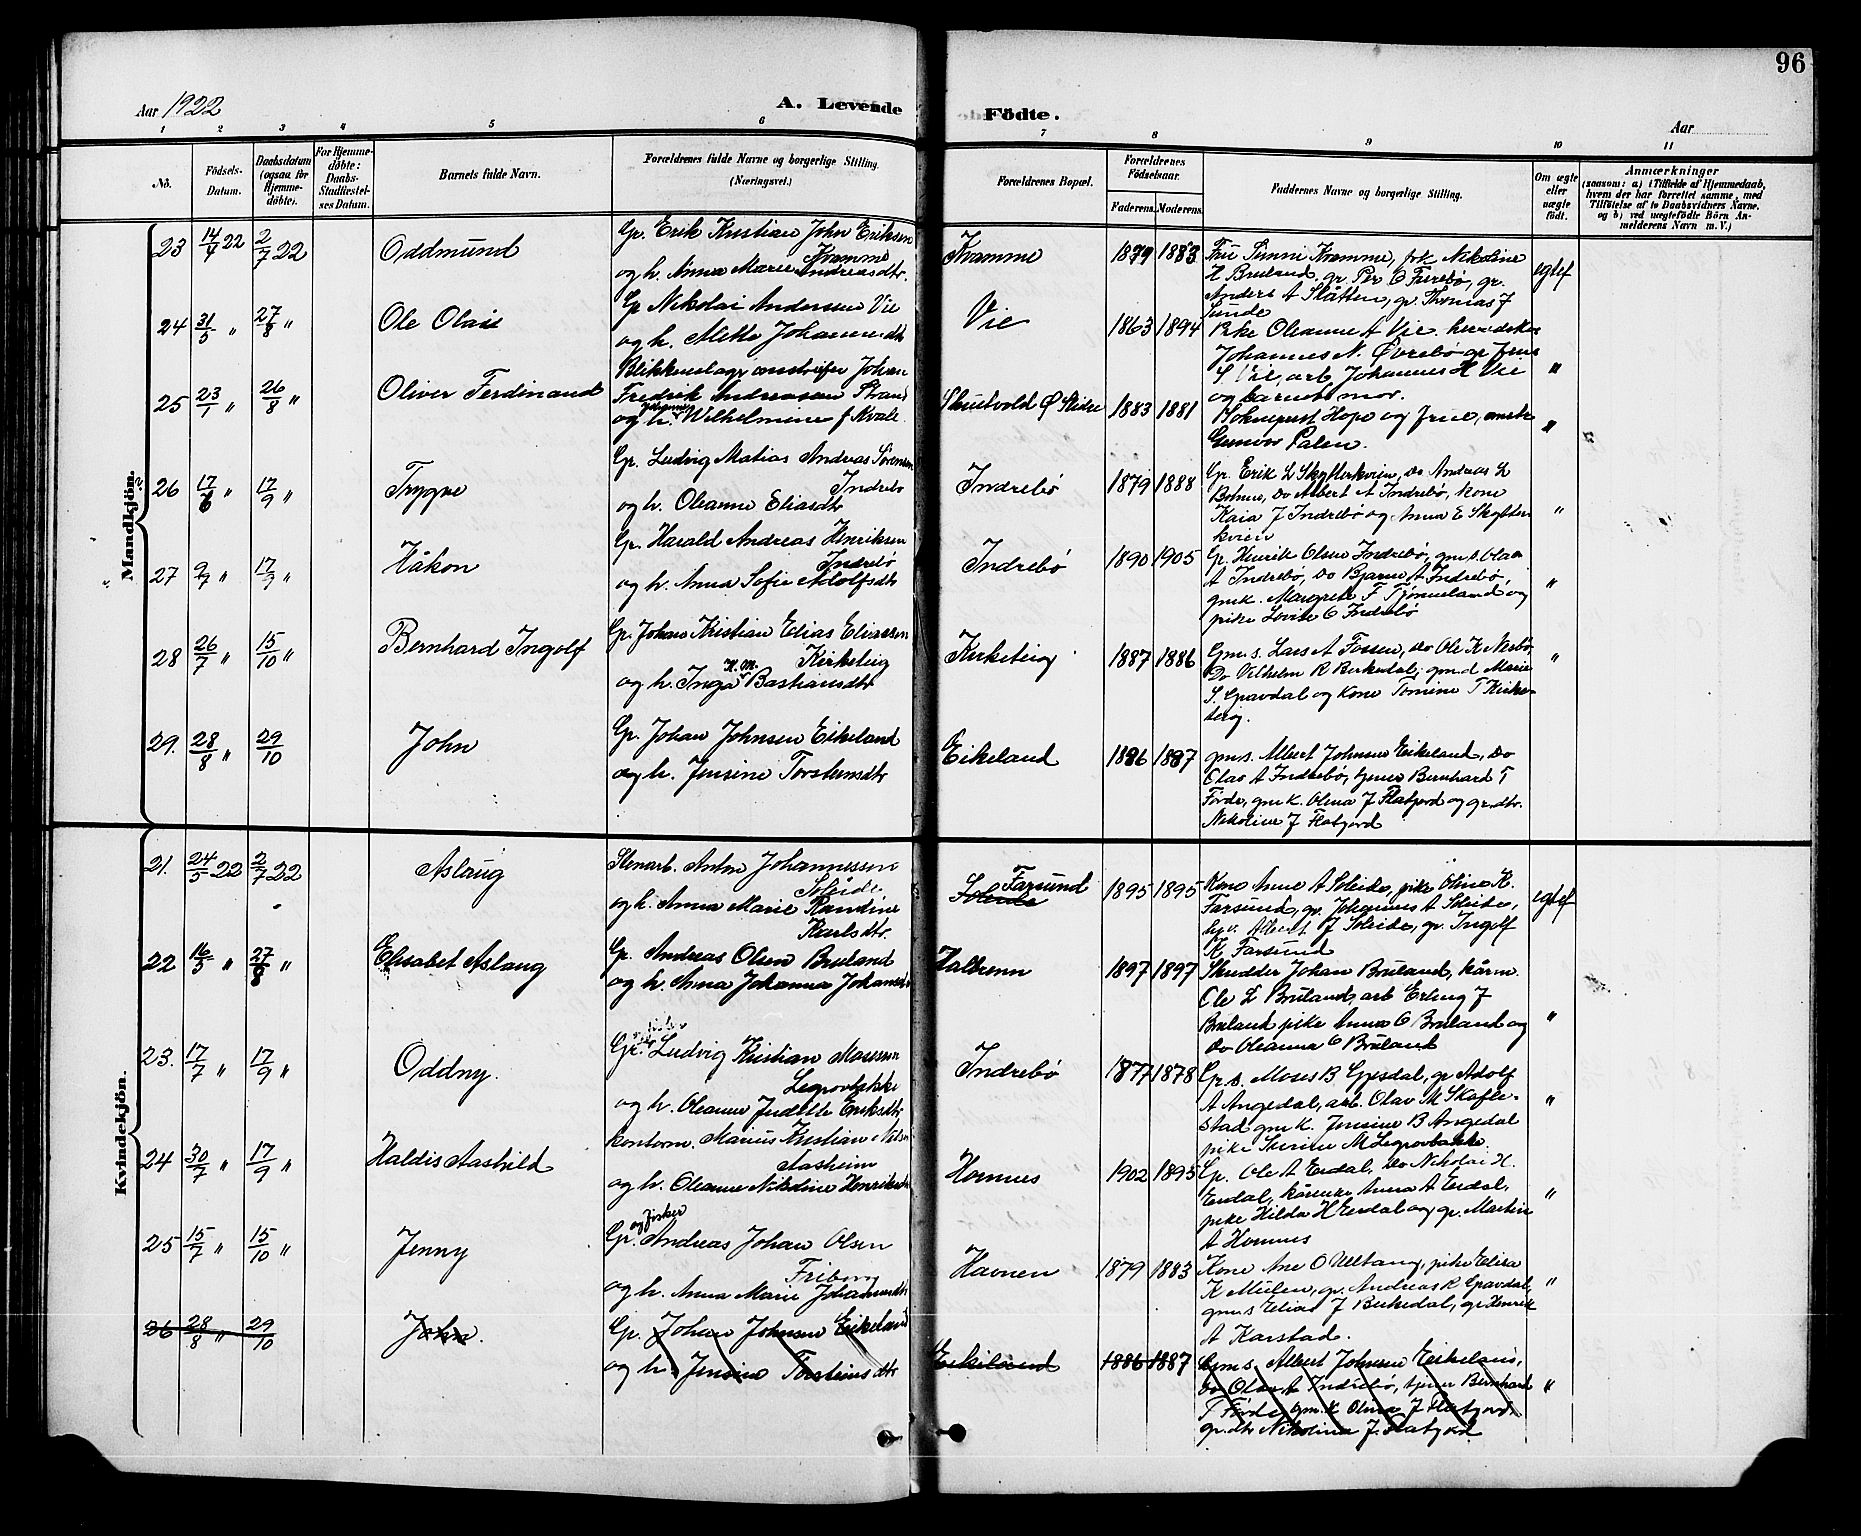 96
Aar 1922
A. Levende
Födte.
Aar
1 2 3 4 5 6 7 8 9 10 11
No.
Födsels-
Datum.
Daabsdatum
(ogsaa for
Hjemme-
döbte).
For Hjemme-
döbte:
Daabs-
Stadfæstel-
ses Datum.
Barnets fulde Navn.
Forældrenes fulde Navne og borgerlige Stilling.
(Næringsvei.)
Forældrenes Bopæl.
Forældrenes
Födselsaar.
Faderens. Moderens.
Faddernes Navne og borgerlige Stilling.
Om ægte
eller
uægte
født.
Anmærkninger
(saasom: a) i Tilfælde af Hjemmedaab,
hvem der har forrettet samme, med
Tilföielse af to Daabsvidners Navne.
og b) ved uægtefödte Börn An-
melderens Navn m. V.)
Mandkjön.
23 14/4 22 2/7 22 Oddmund
Gr. Erik Kristian John Eriksen
Kramme
og h. Anna Marie Andreasdtr
Kramme 1879 1883
Fru Timmi Kramme, frk Nikoline
H Bruland, gr. Per O Furebø, gr.
Anders A Slåtten, gr. Thomas J
Sunde
egtef
24 31/5 " 27/8 " Ole Olai
Gr Nikolai Andersen Vie
og h. Mette Johannesdtr
Vie 1863 1894
Pike Oleanne A Vie,
Johannes N. Øvrebø gr Jens
S Vie, arb Johannes H Vie
og barnets mor.
"
25 23/1 " 26/8 " Oliver Ferdinand
Blikkenslager Johan
Fredrik Andreassen Strand
og h. Wilhelmine f Kvale
Skrutvold Ø Slidre 1883 1881
Hope og frue,
Gunvor Palen.
"
26 17/6 " 17/9 " Trygve
Gr. Ludvig Matias Andreas Sörensen
Indrebø
og h. Oleanne Eliasdtr
Indrebø 1879 1888
Gr. Erik L Skytterkvien, Do Andreas L
Do Albert A Indrebø, Kone
Kaia J Indrebø og Anna E Skytter-
kvien
"
27 9/7 " 17/9 " Håkon
Gr. Harald Andreas Henriksen
Indrebø
og h. Anna Sofie Adolfsdtr
Indrebø 1890 1905
Gr. Henrik Olsen Indrebø, gm.s. Olav
A Indrebø, Do Bjarne A Indrebø,
gmk. Margrete F Tjønneland og
pike Lovise O Indrebø
"
28 26/7 " 15/10 " Bernhard Ingolf
Gr. Johan Kristian Elias Eliassen
Kirketeig
og h. Inga K.M. Bastiansdtr
Kirketeig 1887 1886
Gm.s. Lars A Fossen, Do Ole K Nesbø,
Do Vilhelm R Birkedal, gm.d Marie
S. Gravdal og Kone Tomine T Kirke-
teig.
"
29. 28/8 " 29/10 John
Gr. Johan Johnsen Eikeland
og h. Jensine Torsteinsdtr
Eikeland 1886 1887
gm.s. Albert Johnsen Eikeland, Do
Olav A Indrebø, tjener Bernhard T
Førde, gm K. Olina J Flatjord og gr.dtr.
Nikoline J Flatjord
Kvindekjön.
21. 24/5 22 2/7 22 Aslaug
Stenarb. Anton Johannessen
Soleide
og h. Anna Marie Randine
Karlsdtr.
Farsund
Soleide
1895 1895
Kone Anne A Soleide, pike Olina K.
Farsund, gr. Johannes A Soleide,
Albert J Soleide, gr. Ingolf
K Farsund
egtef
22 16/5 " 27/8 " Elisabet Aslaug
Gr. Andreas Olsen Bruland
og h. Anna Johanna Johansdtr
Halbrenn 1897 1897
Skredder Johan Bruland, kårm.
Ole L Bruland, arb Erling J
Bruland pike Anna O Bruland og
Do Oleanna O Bruland
"
23. 17/7 " 17/9 " Oddny.
Gr. Ludvig Kristian Mosessen
Legrovbakke
og h. Oleanne Judith Eriksdtr
Indrebø 1877 1878
Gr.s. Moses B Gjesdal, gr Adolf
A Angedal, arb. Olav M Skafle-
stad gm K. Jensine B Angedal
pike M Legrovbakke
"
24 30/7 " 17/9 " Haldis Aashild
Kontorm. Marius Kristian
Aasheim
og h. Oleanne Nikoline Henriksdtr
Hornnes 1902 1895
Gr. Ole A Erdal, Do Nikolai H.
Erdal, Anna A Erdal,
pike Hilda H Erdal og gr. Martin
A Hornnes
"
25 15/7 " 15/10 " Jenny
Gr. og fisker Andreas Johan Olsen
Friborg
og h. Anna Marie Johannesdtr
Havnen 1879 1883
Kone Ane O Ulltang, pike Elisa
K Mulen, gr. Andreas R Gravdal,
gm.s Elias J Birkedal, gr Henrik
A Karstad.
"
26 28/8 " 29/10 John.
Gr. Johan Johnsen Eikeland
og h. Jensine Torsteinsdtr
Eikeland 1886 1887
Gm.s. Albert Johnsen Eikeland,
Do Olav A Indrebø, tjener Bernhard
T Førde gm.K Olina J Flatjord,
gr.dtr Nikolina J. Flatjord
"